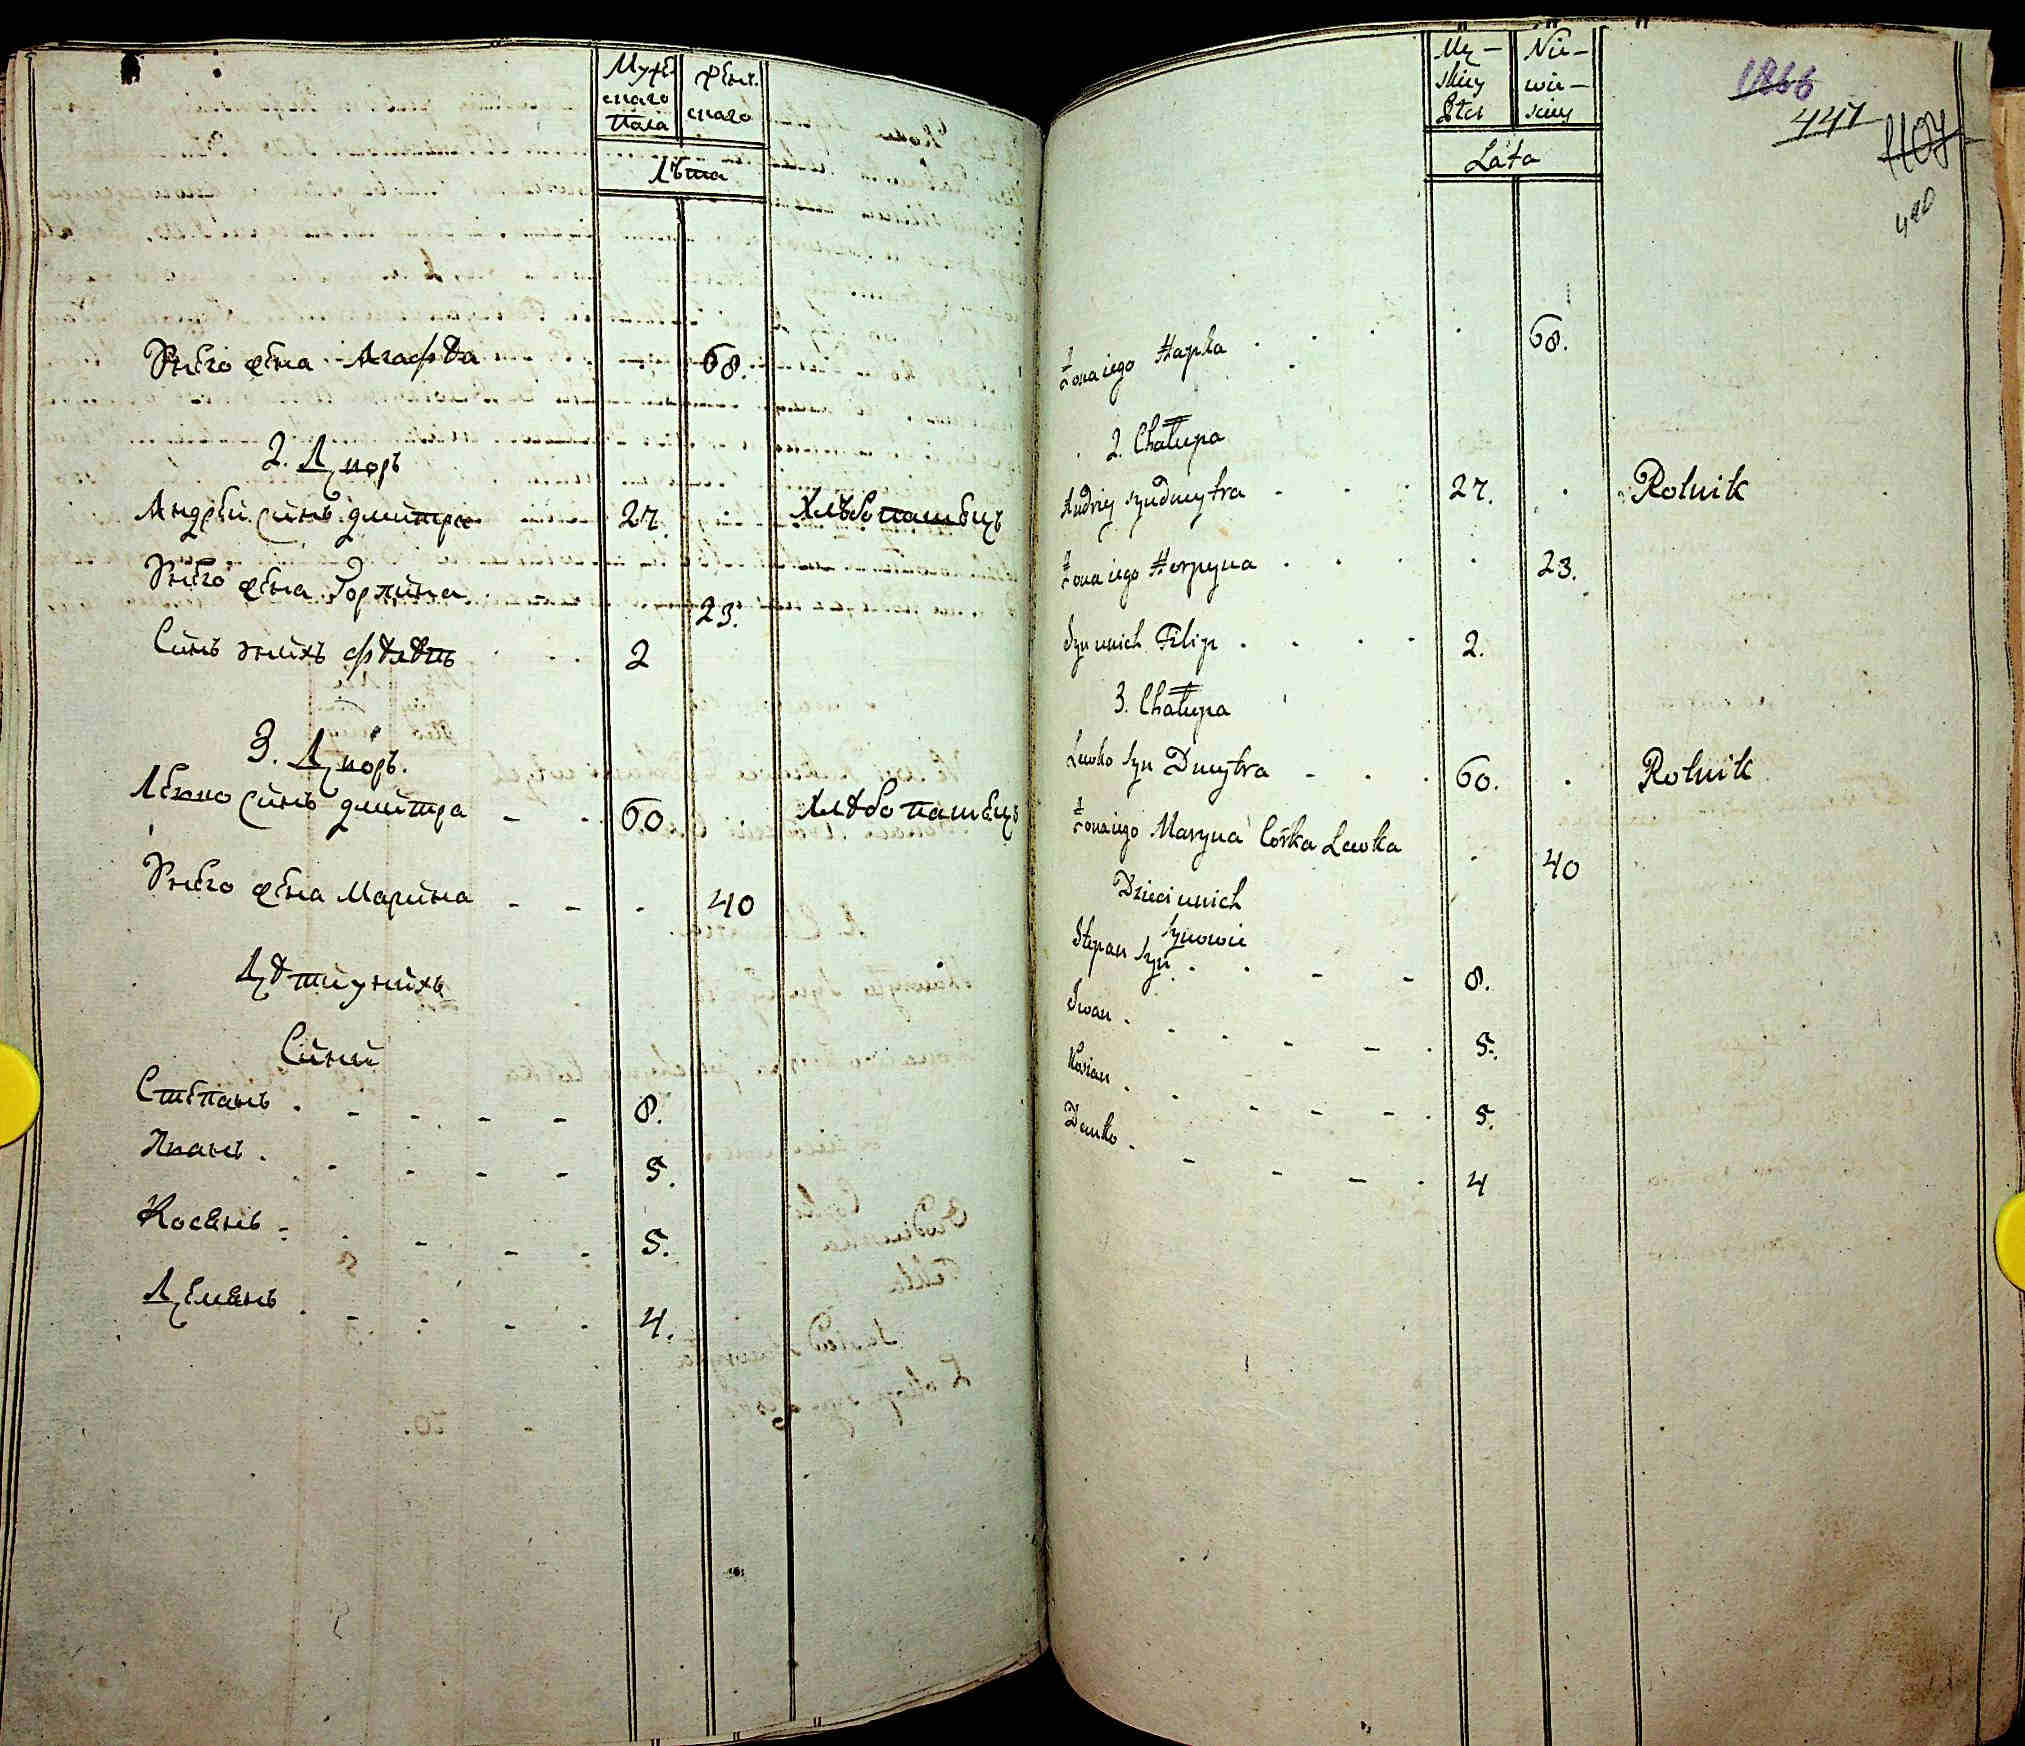 Мужескаго пола
Женскаго
Лѣта
Унего жена Агафѣа 68.
2. Дворъ
Андрей синъ дмитра 27. Хлѣбопашецъ
Унего жена Горпина 23.
Синъ унихъ 2
3. Дворъ.
Левко синъ дмитра 60 Хлѣбопашецъ
Унего жена Марина 40
Дѣти унихъ
Сини
Степанъ 8.
Иванъ 5.
Касянъ 5.
Демянъ 4.
Mę-
skiey
Płci
Nie-
wie-
sciey
Lata
1866
447
420
Żona iego Hapka 68.
2. Chałupa
Andriy syn dmytra 27. Rolnik
Żona iego Horpyna 23.
Syn unich Filip 2.
3. Chałupa
Lewko syn Dmytra 60. Rolnik
Żona iego Maryna Córka Lewka 40
Dzieci unich
Synowie
Stepan syn 8.
Iwan 5.
Kosian 5.
Demko 4